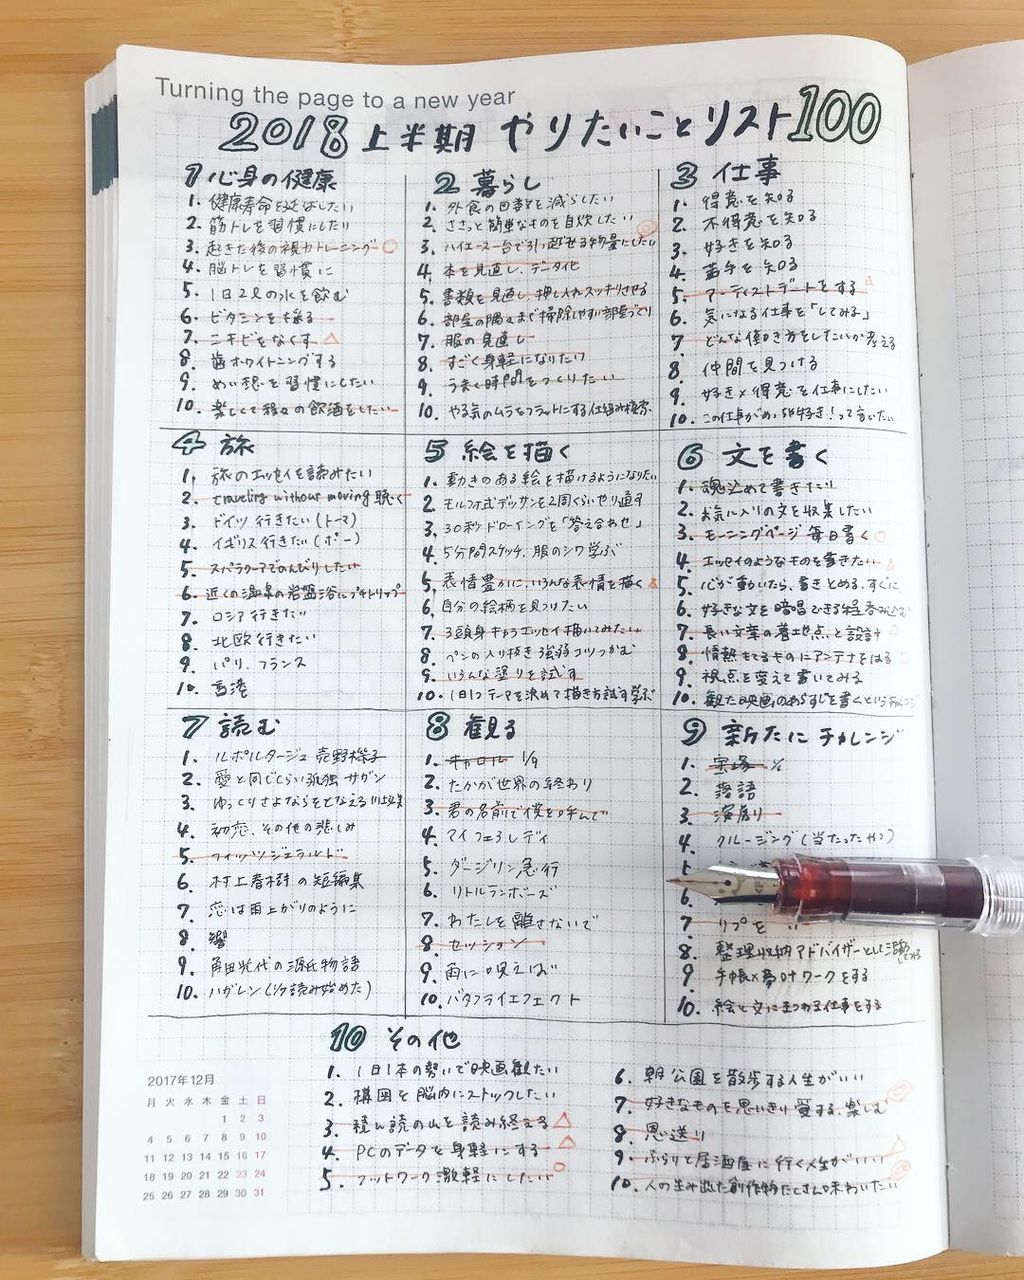 Turning the page to a new year
2018 上半期 やりたいことリスト100
1 心身の健康
1. 健康寿命を延ばしたい
2. 筋トレを習慣にしたり
3. 起きた後の視力トレーニング
4. 脳トレを習慣に
5. 1日2Lの水を飲む
6. ビタミンを採る
7. ニキビをなくす
8. 歯ホワイトニングする
9. めい想を習慣にしたい
10. 楽しくて程々の飲酒をしたい
2 暮らし
1. 外食の回数を減らしたい
2. ささっと簡単なものを自炊したい
3. ハイエース一台で引っ越せる物量にしたい
4. 本を見直し、データ化
5. 書類を見直し、押し入れスッキリさせる
6. 部屋の隅々まで掃除しやすい部屋づくり
7. 服の見直し
8. すごく身軽になりたい
9. うまく時間をつくりたい
10. やる気のムラをフラットにする仕組み検索
3 仕事
1. 得意を知る
2. 不得意を知る
3. 好きを知る
4. 苦手を知る
5. アーティストデートをする
6. 気になる仕事を「してみる」
7. どんな働き方をしたいか考える
8. 仲間を見つける
9. 好き×得意を仕事にしたい
10. この仕事がめっちゃ好き!って言いたい
4 旅
1. 旅のエッセイを読みたい
2. traveling without moving 聴く
3. ドイツ行きたい(トーマ)
4. イギリス行きたい(ポー)
5. スパラクーアでのんびりしたい
6. 近くの温泉の岩盤浴にプチトリップ
7. ロシア行きたい
8. 北欧行きたい
9. パリ、フランス
10. 香港
5 絵を描く
1. 動きのある絵を描けるようになりたい
2. モルフォ式デッサンを2周くらいやり通す
3. 30秒ドローイングを「答え合わせ」
4. 5分間スケッチ、服のシワ学ぶ
5. 表情豊かに、いろんな表情を描く
6. 自分の絵柄を見つけたい
7. 3頭身キャラエッセイ描いてみたい
8. ペンの入り抜き強弱コツつかむ
9. いろんな塗りを試す
10. 1日1つテーマを決めて描き方試す学ぶ
6 文を書く
1. 魂込めて書きたい
2. お気に入りの文を収集したい
3. モーニングページ 毎日書く
4. エッセイのようなものを書きたい
5. 心が動いたら、書きとめる、すぐに
6. 好きな文を暗唱できる程
7. 長い文章の着地点、と設計
8. 情熱もてるものにアンテナをはる
9. 視点を変えて書いてみる
10. 観た映画のあらすじを書くというチャレンジ
7 読む
1. ルポルタージュ 売野機子
2. 愛と同じくらい孤独 サガン
3. ゆっくりさよならをとなえる 川上弘美
4. 初恋、その他の悲しみ
5. フィッツジェラルド
6. 村上春樹の短編集
7. 恋は雨上がりのように
8. 響
9. 角田光代の源氏物語
10. ハガレン(1/7読み始めた)
8 観る
1. キャロル 1/9
2. たかが世界の終わり
3. 君の名前で僕を呼んで
4. マイフェアレディ
5. ダージリン急行
6. リトルランボーズ
7. わたしを離さないで
8. セッション
9. 雨に唄えば
10. バタフライエフェクト
9 新たにチャレンジ
1. 宝塚
2. 落語
3. 演劇
4. クルージング(当たったやつ)
6.
7.
8. 整理収納アドバイザーとして活動してみる
9. 手帳×夢叶ワークをする
10. 絵と文にまつわる仕事をする
10 その他
1. 1日1本の勢いで映画観たい
2. 構図を脳内にストックしたい
3. 積ん読の山を読み終える
4. PCのデータを身軽にする
5. フットワーク激軽にしたい
6. 朝公園を散歩する人生がいい
7. 好きなものを思いきり愛する、楽しむ
8. 恩送り
9. ふらりと居酒屋に行く人生がいい
10. 人の生み出た創作物たくさん味わいたい
2017年12月
月 火 水 木 金 土 日
1 2 3
4 5 6 7 8 9 10
11 12 13 14 15 16 17
18 19 20 21 22 23 24
25 26 27 28 29 30 31